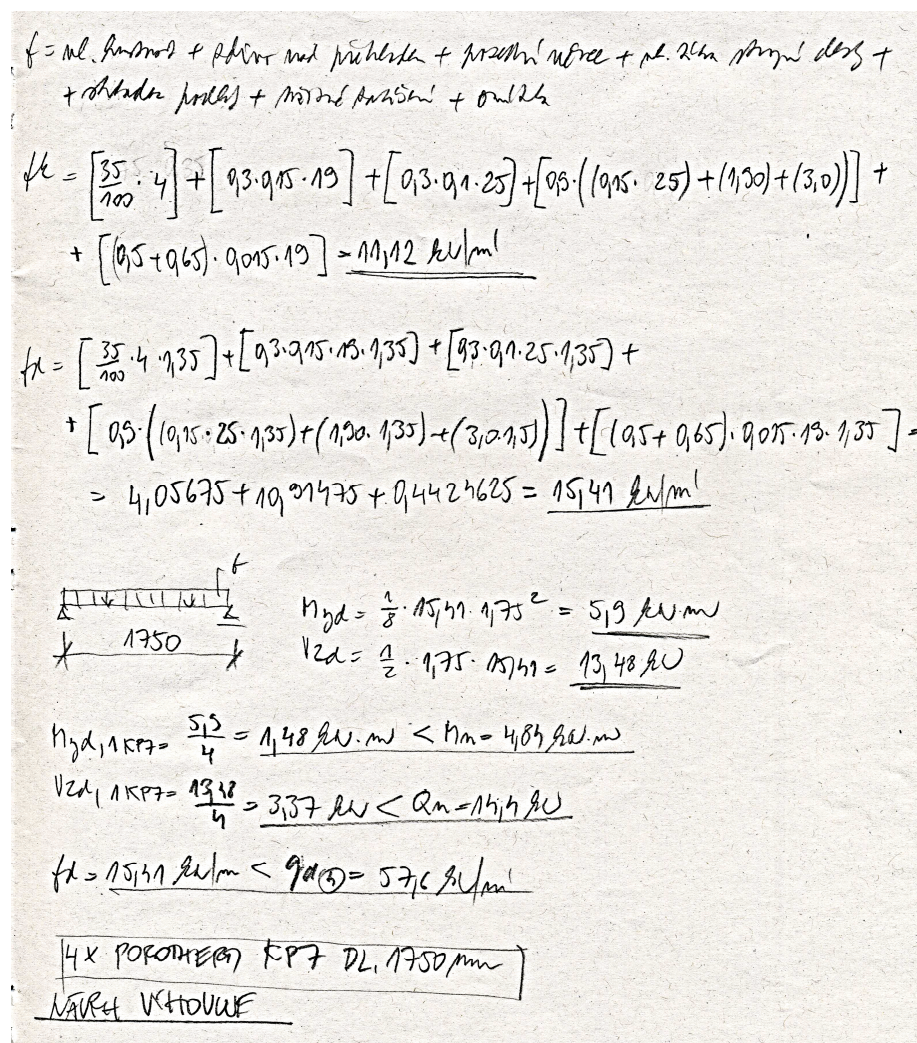 f = vl. hmotnost + zdivo nad překladem + pozední věnec + vl. tíha stropní desky +
+ skladba podlahy + užitné zatížení + omítka
fk = [35/100 · 4] + [0,3·0,15·19] + [0,3·0,1·25] + [0,9·((0,15·25)+(1,90)+(3,0))] +
+ [(0,5+0,65)·0,015·19] = 11,12 kN/m'
fd = [35/100·4·1,35] + [0,3·0,15·19·1,35] + [0,3·0,1·25·1,35] +
+ [0,9·((0,15·25·1,35)+(1,90·1,35)+(3,0·1,5))] + [(0,5+0,65)·0,015·19·1,35] =
= 4,05675 + 10,91475 + 0,4424625 = 15,41 kN/m'
f
1750
Myd = 1/8 · 15,41 · 1,75² = 5,9 kN·m
Vzd = 1/2 · 1,75 · 15,41 = 13,48 kN
Myd,1KP7 = 5,9/4 = 1,48 kN·m < Mm = 4,84 kN·m
Vzd,1KP7 = 13,48/4 = 3,37 kN < Qm = 14,4 kN
fd = 15,41 kN/m < qd④ = 57,6 kN/m'
4X POROTHERM KP7 DL. 1750 mm
NÁVRH VYHOVUJE